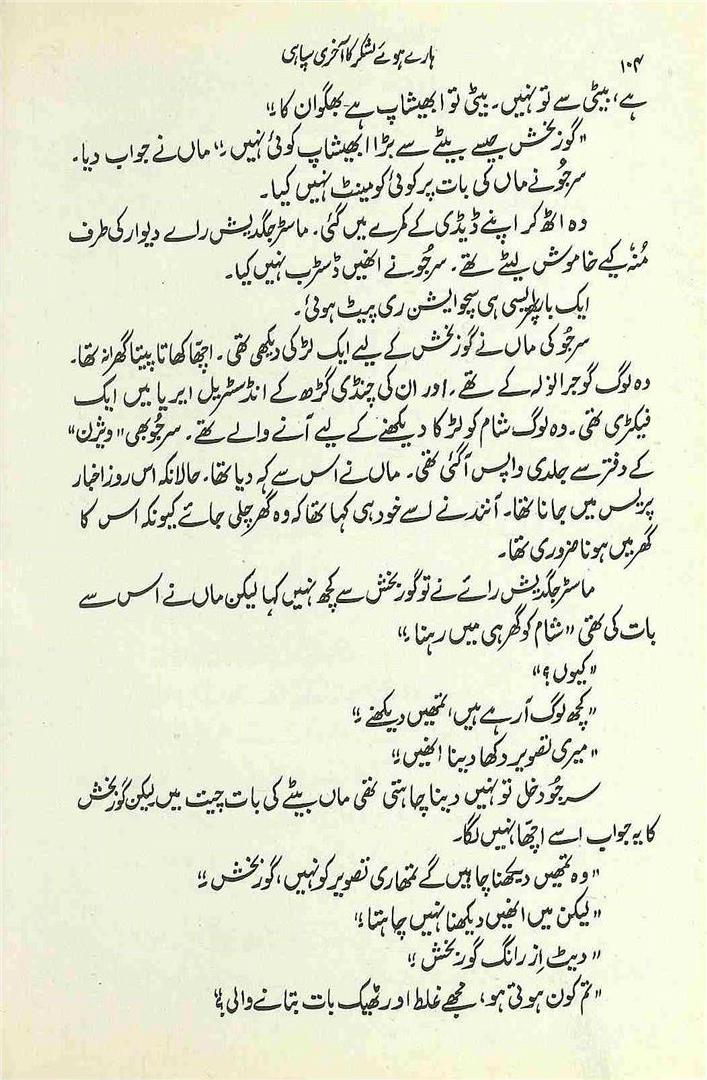 ۱۰۴
ہارے ہوئے لشکر کا آخری سپاہی
ہے، بیٹی سے تو نہیں۔ بیٹی تو ابھیشاپ ہے بھگوان کا۔"
"گوربخش جیسے بیٹے سے بڑا ابھیشاپ کوئی نہیں۔" ماں نے جواب دیا۔
سرجُو نے ماں کی بات پر کوئی کومینٹ نہیں کیا۔
وہ اٹھ کر اپنے ڈیڈی کے کمرے میں گئی۔ ماسٹر جگدیش رائے دیوار کی طرف
مُنہ کیے خاموش لیٹے تھے۔ سرجُو نے انھیں ڈسٹرب نہیں کیا۔
ایک بار پھر ایسی ہی سچوایشن ری پیٹ ہوئی۔
سرجُو کی ماں نے گوربخش کے لیے ایک لڑکی دیکھی تھی۔ اچھا کھاتا پیتا گھرانہ تھا۔
وہ لوگ گوجرانوالہ کے تھے۔ اور ان کی چنڈی گڑھ کے انڈسٹریل ایریا میں ایک
فیکٹری تھی۔ وہ لوگ شام کو لڑکا دیکھنے کے لیے آنے والے تھے۔ سرجُو بھی "ویژن"
کے دفتر سے جلدی واپس آگئی تھی۔ ماں نے اس سے کہہ دیا تھا۔ حالانکہ اس روز اخبار
پریس میں جانا تھا۔ آنند نے اسے خود ہی کہا تھا کہ وہ گھر چلی جائے کیونکہ اس کا
گھر میں ہونا ضروری تھا۔
ماسٹر جگدیش رائے نے تو گوربخش سے کچھ نہیں کہا لیکن ماں نے اس سے
بات کی تھی "شام کو گھر ہی میں رہنا۔"
"کیوں؟"
"کچھ لوگ آرہے ہیں، تمھیں دیکھنے۔"
"میری تصویر دکھا دینا انھیں۔"
سرجُو دخل تو نہیں دینا چاہتی تھی ماں بیٹے کی بات چیت میں لیکن گوربخش
کا یہ جواب اسے اچھا نہیں لگا۔
"وہ تمھیں دیکھنا چاہیں گے تمھاری تصویر کو نہیں، گوربخش۔"
"لیکن میں انھیں دیکھنا نہیں چاہتا۔"
"دیٹ اِز رانگ گوربخش۔"
"تم کون ہوتی ہو، مجھے غلط اور ٹھیک بات بتانے والی؟"